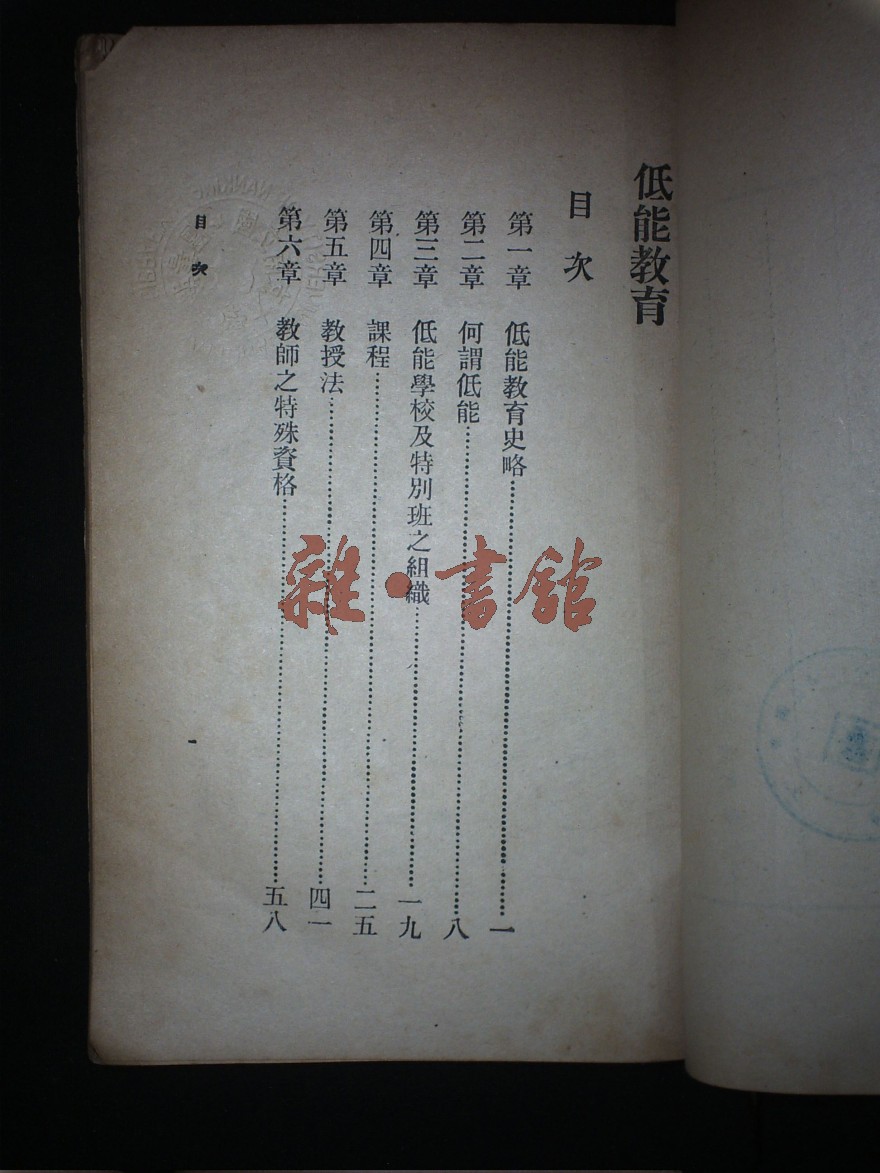 低能教育
目次
第一章 低能教育史略 一
第二章 何謂低能 八
第三章 低能學校及特別班之組織 一九
第四章 課程 二五
第五章 教授法 四一
第六章 教師之特殊資格 五八
目次
一
雜·書館